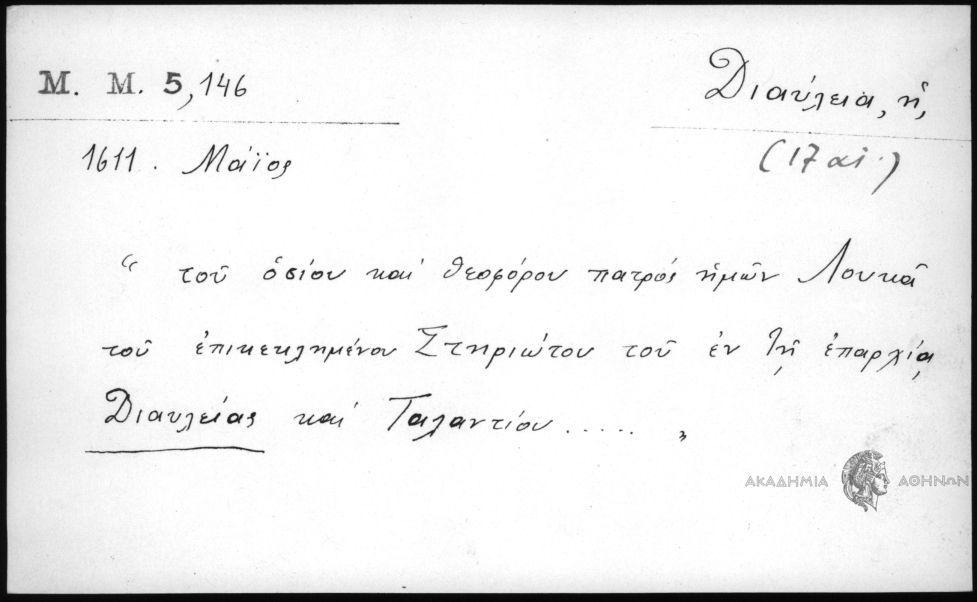 Μ. Μ. 5,146
Διαύλεια, ἡ,
1611. Μάϊος
(17 αἰ.)
“ τοῦ ὁσίου καὶ θεοφόρου πατρός ἡμῶν Λουκᾶ
τοῦ ἐπικεκλημένου Στηριώτου τοῦ ἐν τῇ ἐπαρχίᾳ
Διαυλείας καί Ταλαντίου ..... „
ΑΚΑΔΗΜΙΑ ΑΘΗΝΩΝ